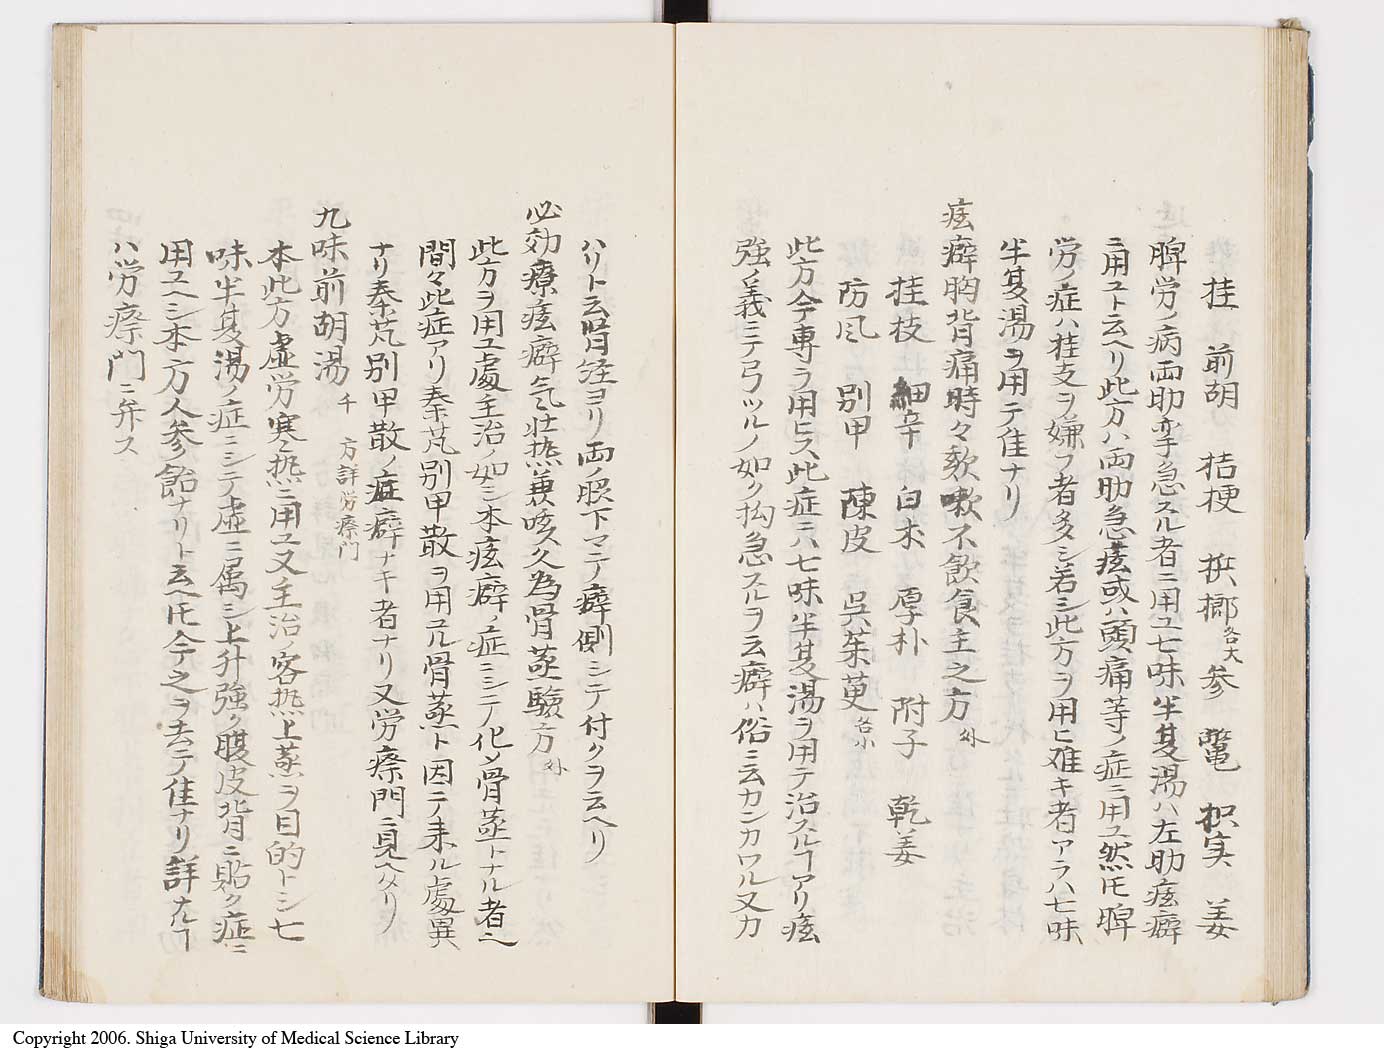 桂 前胡 桔梗 梹榔各大 參 鼈 枳実 姜
脾労ノ病両肋孿急スル者ニ用ユ七味半夏湯ハ左肋痃癖
ニ用ユト云ヘリ此方ハ両肋急痃或ハ頭痛等ノ症ニ用ユ然𪜈脾
労ノ症ハ桂支ヲ嫌フ者多シ若シ此方ヲ用ヒ難キ者アラハ七味
半夏湯ヲ用テ佳ナリ
痃癖胸背痛時々欬嗽不飲食主之方 外
桂枝 細辛 白朮 厚朴 附子 乾姜
防風 別甲 陳皮 呉茱萸各小
此方今専ラ用ヒス此症ニハ七味半夏湯ヲ用テ治スルヿアリ痃
強ノ義ニテ弓ツルノ如ク拘急スルヲ云癖ハ俗ニ云カンカワル又カ
ハリト云腎經ヨリ両ノ臍下マテ癖側シテ付クヲ云ヘリ
必効療痃癖氣壮熱兼咳久為骨蒸驗方 外
此方ヲ用ユ處主治ノ如シ本痃癖ノ症ニシテ化メ骨蒸トナル者ニ
間々此症アリ秦艽別甲散ヲ用凢骨蒸ト因テ来ル處異
ナリ秦艽別甲散ノ症癖ナキ者ナリ又労瘵門ニ見ヘタリ
九味前胡湯 千 方詳労瘵門
本此方虚労寒熱ニ用ユ又主治ノ客熱上蒸ヲ目的トシ七
味半夏湯ノ症ニシテ虚ニ属シ上升強ク腹皮背ニ貼ク症ニ
用ユヘシ本方人參飴ナリト云ヘ𪜈今之ヲ去テ佳ナリ詳ナルヿ
ハ労瘵門ニ弁ス
Copyright 2006. Shiga University of Medical Science Library